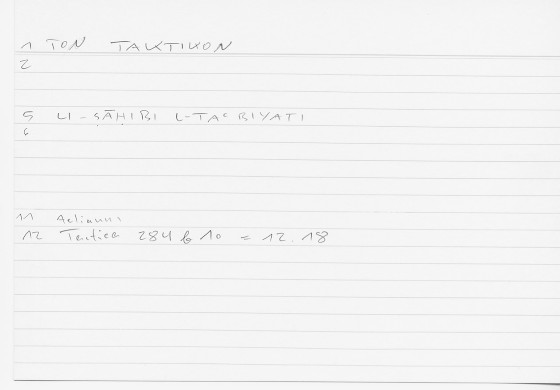 1 TON TAKTIKON
2
5 LI-ṢĀḤIBI L-TAʿBIYATI
6
11 Aelianus
12 Tactica 284 b 10 = 12.18